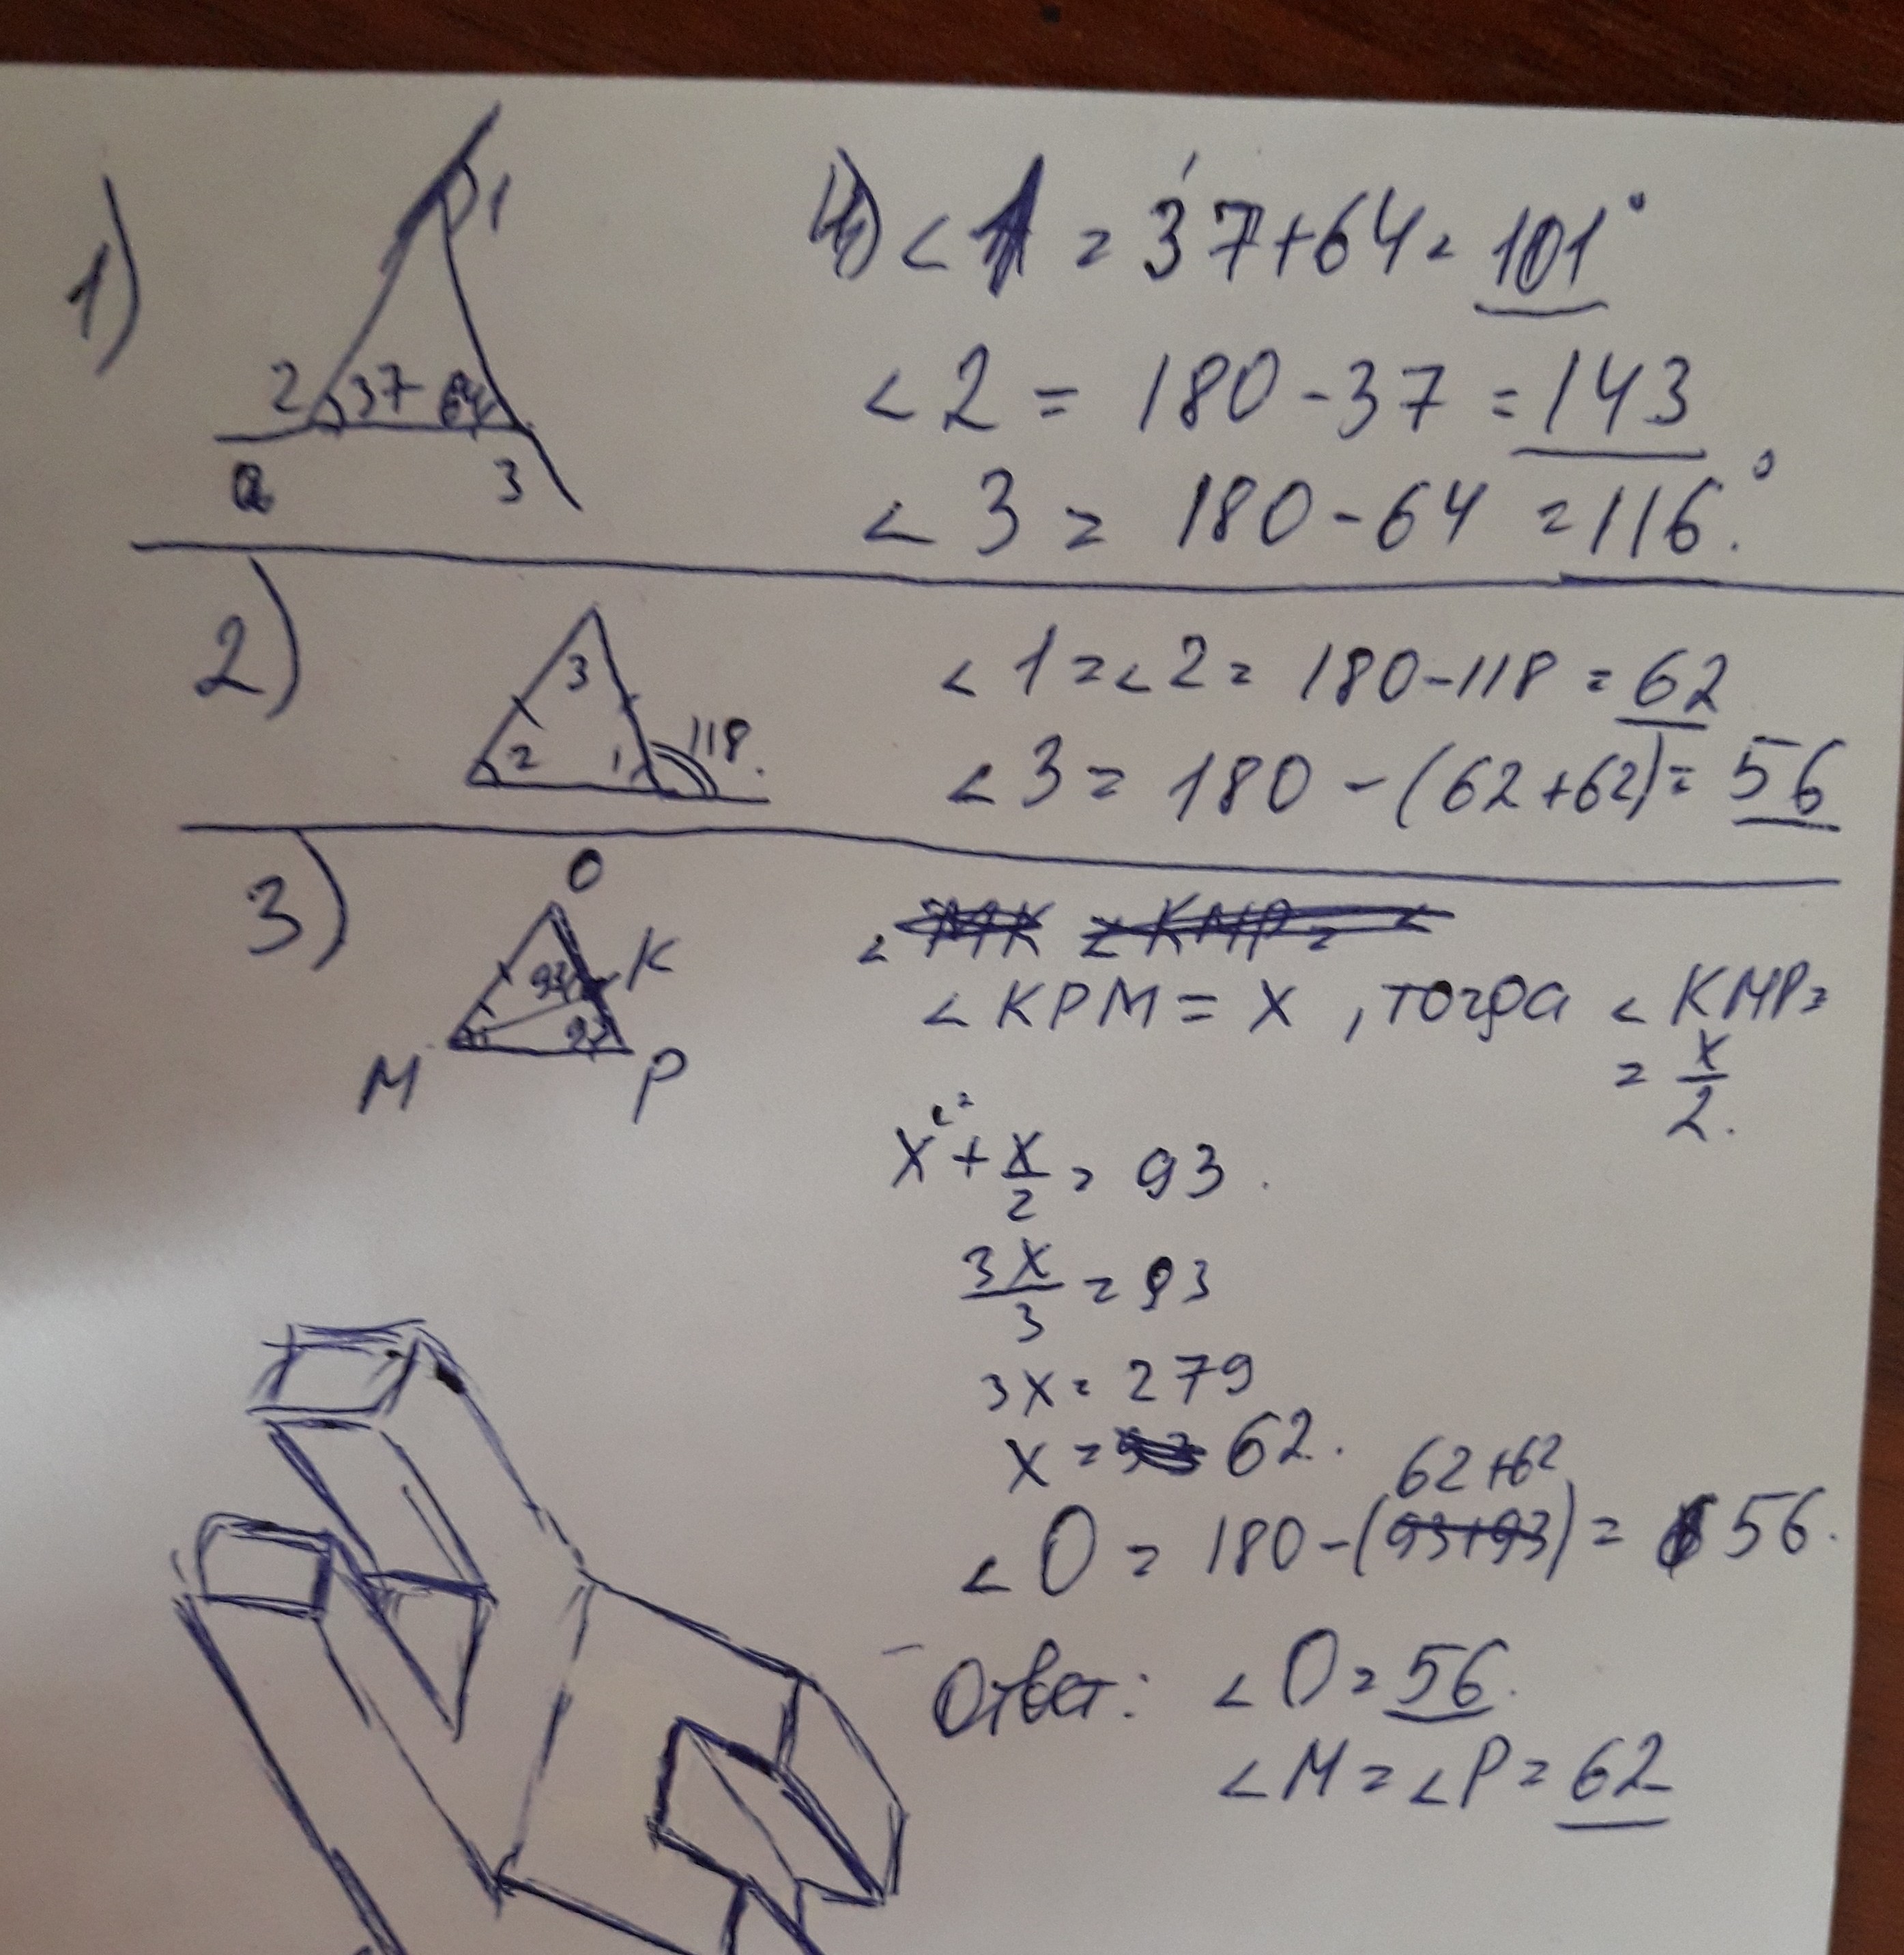 1)
1
2 37 64
3
∠1 = 37+64= 101°
∠2 = 180-37 = 143
∠3 = 180-64 = 116°.
2)
3
2 1 118.
∠1=∠2= 180-118 = 62
∠3 = 180-(62+62)= 56
3)
O
K
M P
∠KPM = x, тогда ∠KMP=
= x/2.
x + x/2 = 93.
3x/3 = 93
3x = 279
x = 62.
62+62
∠O = 180-(93+93) = 56.
Ответ: ∠O = 56.
∠M = ∠P = 62